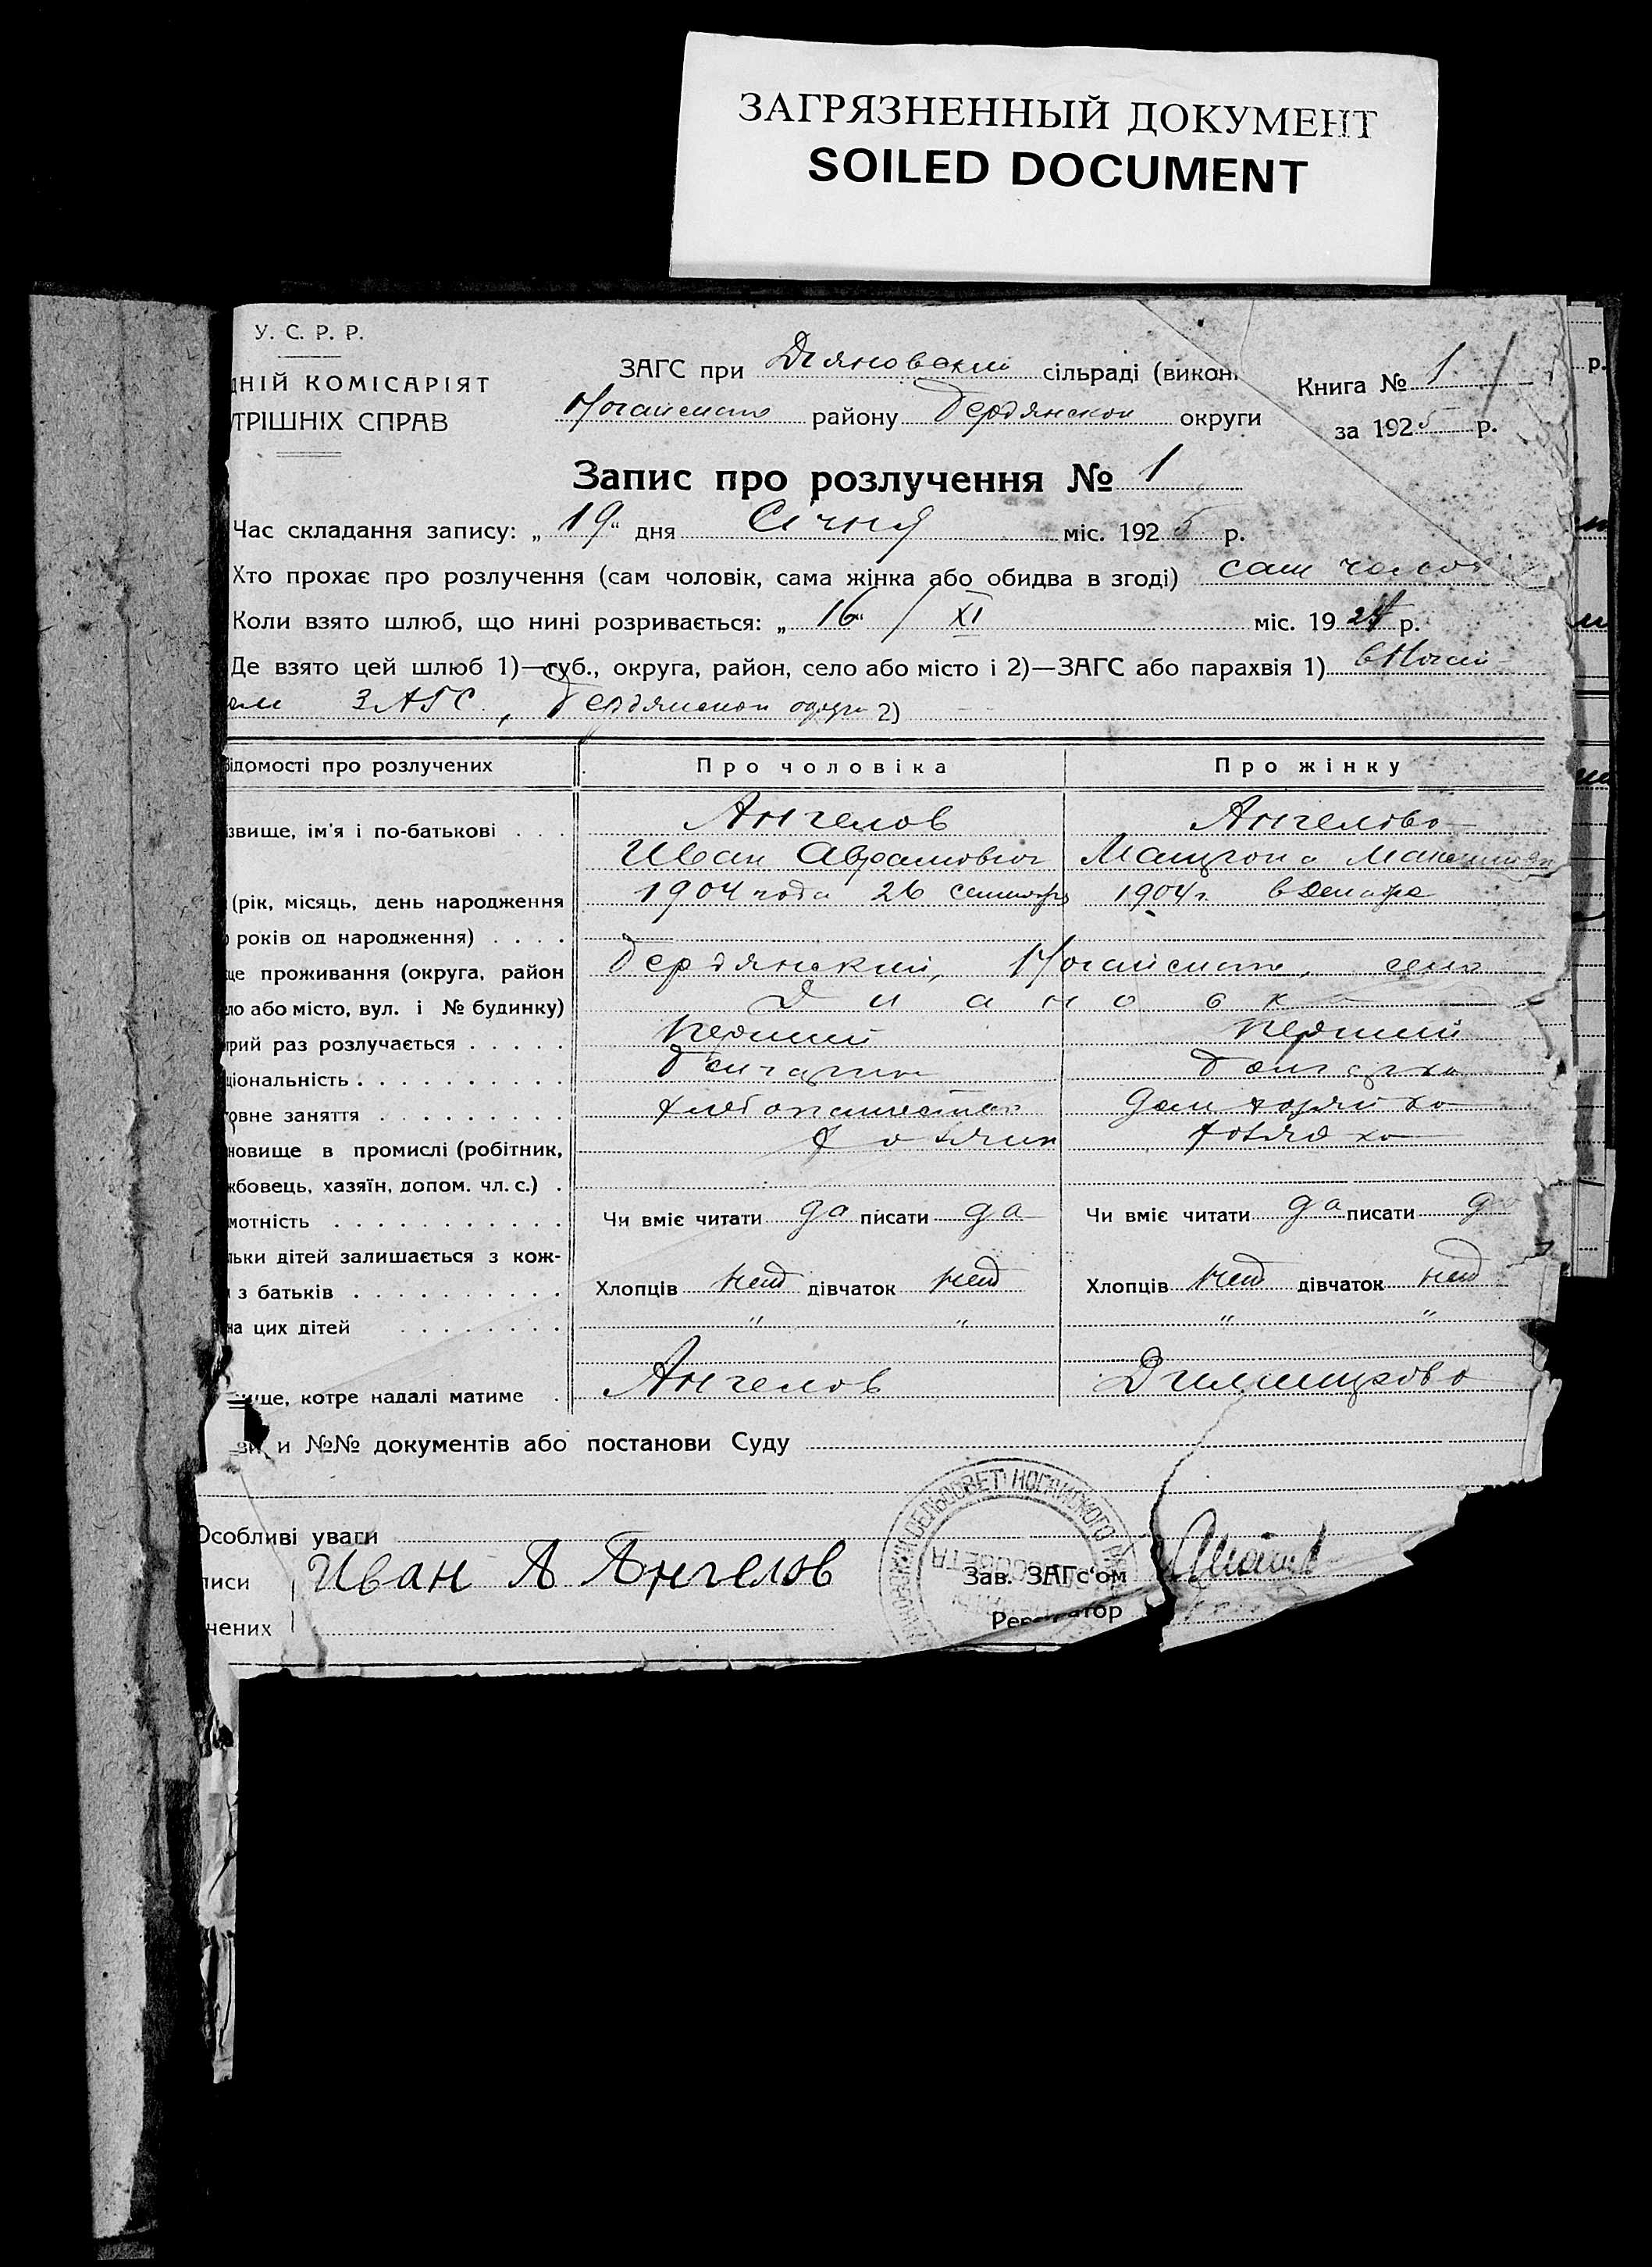 ЗАГРЯЗНЕННЫЙ ДОКУМЕНТ
SOILED DOCUMENT
У. С. Р. Р.
ДНІЙ КОМІСАРІЯТ
ТРІШНІХ СПРАВ
ЗАГС при Дияновский сільраді (викон.
Ногайского району Бердянской округи
Книга № 1
за 1925 р.
Запис про розлучення № 1
Час складання запису: „ 19 “ дня Січня міс. 1925 р.
Хто прохає про розлучення (сам чоловік, сама жінка або обидва в згоді) сам
Коли взято шлюб, що нині розривається: „ 16 “ / XI міс. 1924 р.
Де взято цей шлюб 1)—губ., округа, район, село або місто і 2)—ЗАГС або парахвія 1) в Ногай-
ЗАГС, Бердянской округи 2)
відомості про розлучених Про чоловіка Про жінку
звище, ім'я і по-батькові . . . Ангелов Ангелова
Иван Аврамович
(рік, місяць, день народження 1904 года 26 сентября 1904 г. декабря
років од народження) . . . .
це проживання (округа, район Бердянский, Ногайского, село
ло або місто, вул. і № будинку) Диановка
трий раз розлучається . . . . . Перший Перший
ціональність . . . . . . . . . . Болгарин Болгарка
овне заняття . . . . . . . . . хлебопашество
новище в промислі (робітник, хозяин
жбовець, хазяїн, допом. чл. с.) .
мотність . . . . . . . . . . . Чи вміє читати да писати да Чи вміє читати да писати да
льки дітей залишається з кож-
з батьків . . . . . . . . . . Хлопців нет дівчаток нет Хлопців нет дівчаток нет
на цих дітей . . . . . . . . " " " "
ище, котре надалі матиме . Ангелов
ви и №№ документів або постанови Суду
Особливі уваги
писи Иван А Ангелов Зав. ЗАГс'ом
чених
СЕЛЬСОВЕТ НОГАЙСКОГО